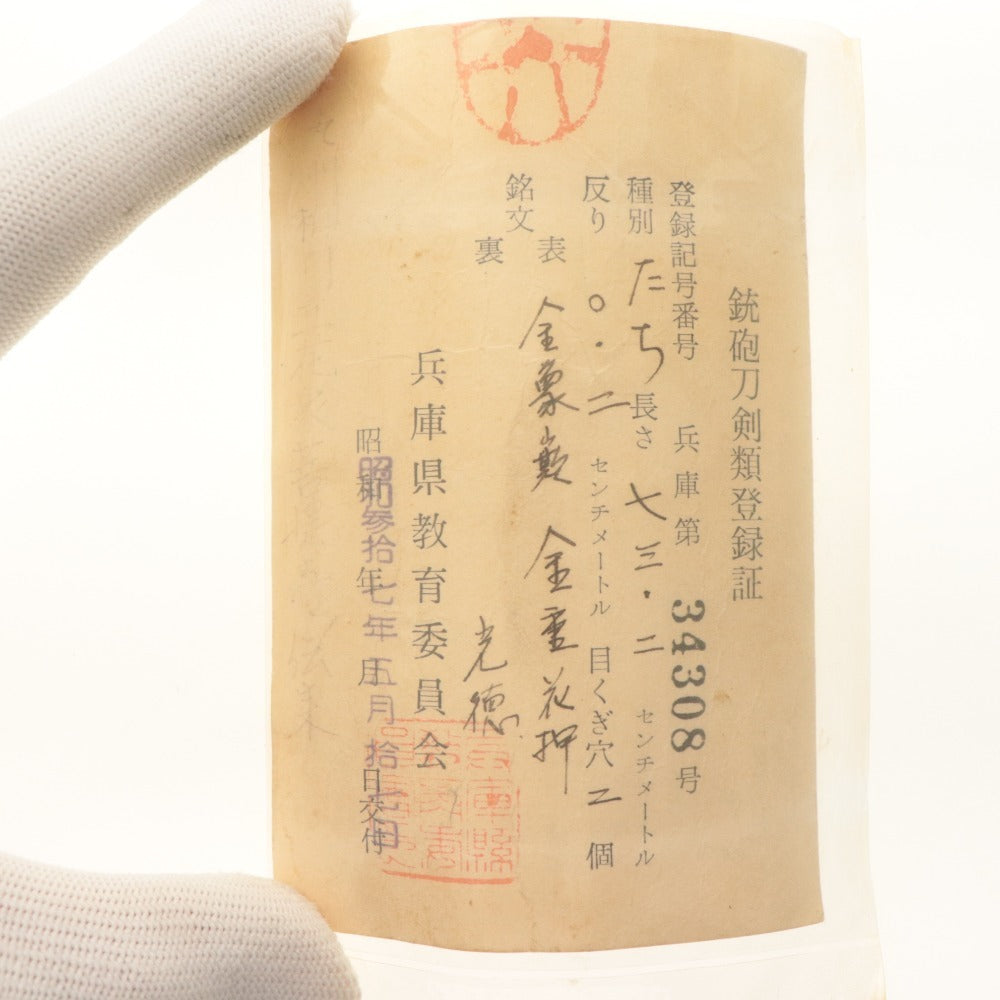 銃砲刀剣類登録証
登録記号番号 兵庫第 34308 号
種別 たち 長さ 七三・二 センチメートル
反り 〇・二 センチメートル 目くぎ穴 2 個
銘文 表 金象嵌 金重花押
裏 光徳
兵庫県教育委員会
昭和 年 月 日交付
昭和参拾七年五月拾七日